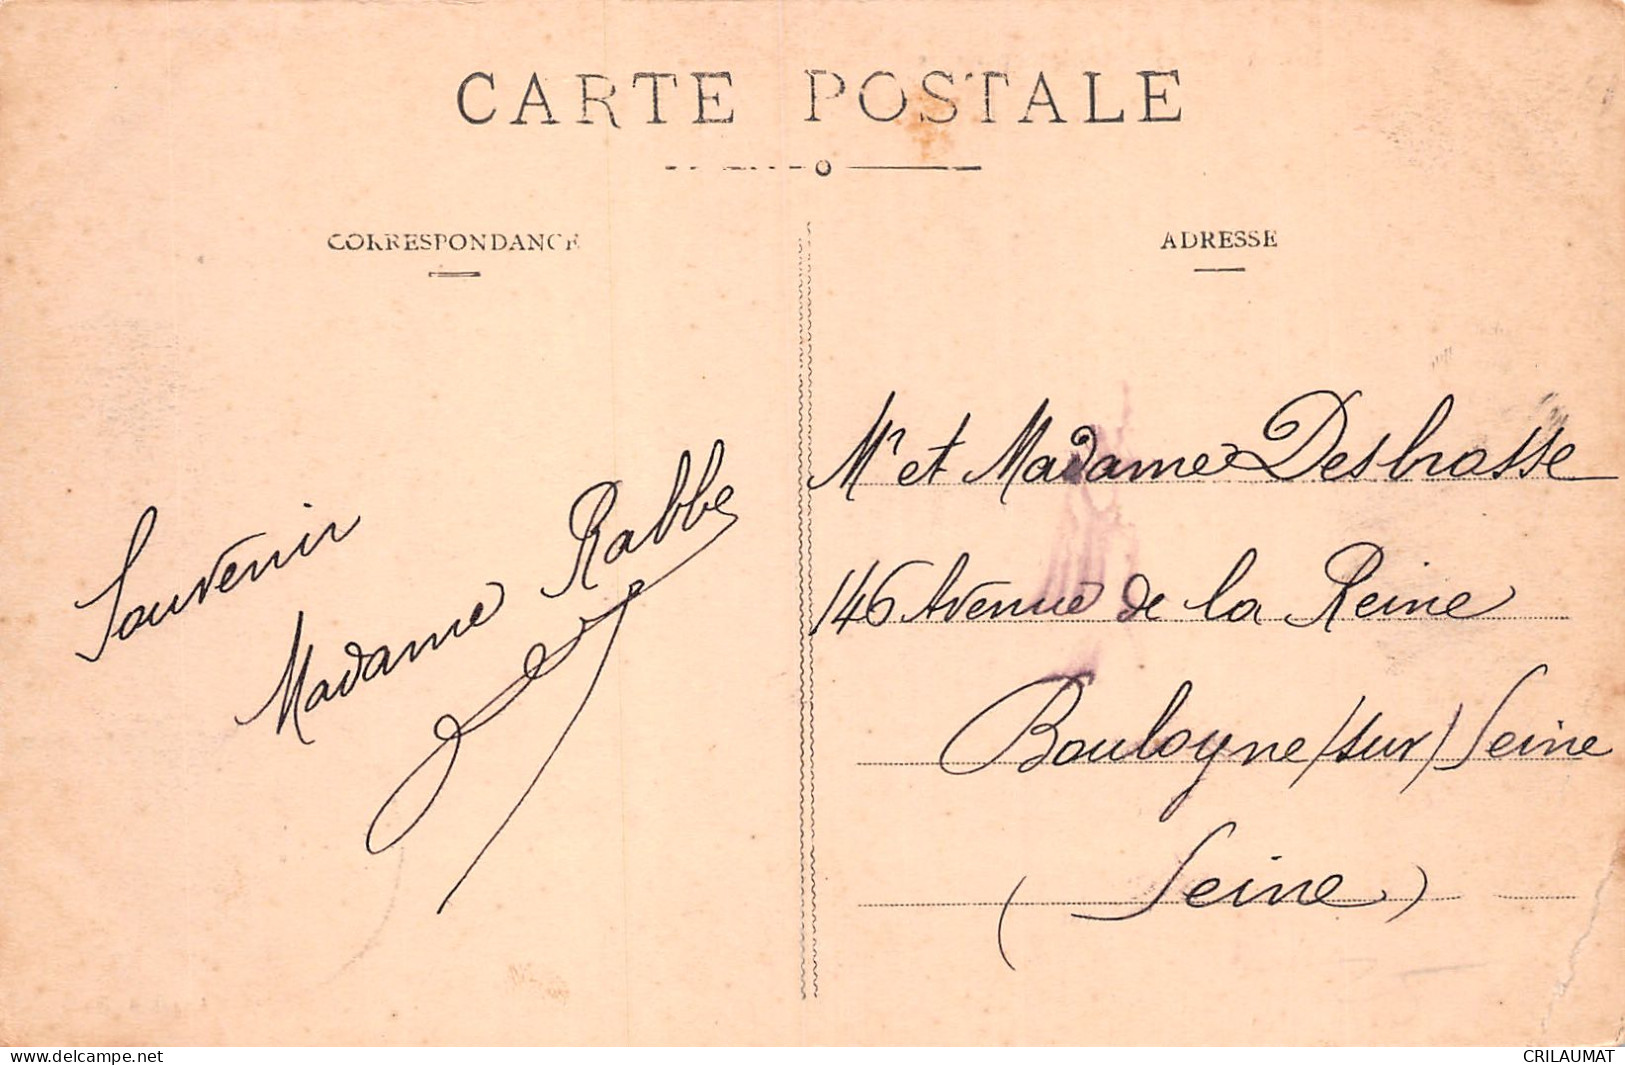 CARTE POSTALE
CORRESPONDANCE
ADRESSE
Souvenir
Madame Rabbe
Mr et Madame Desbrosse
146 Avenue de la Reine
Boulogne/sur/Seine
(Seine)
www.delcampe.net
CRILAUMAT